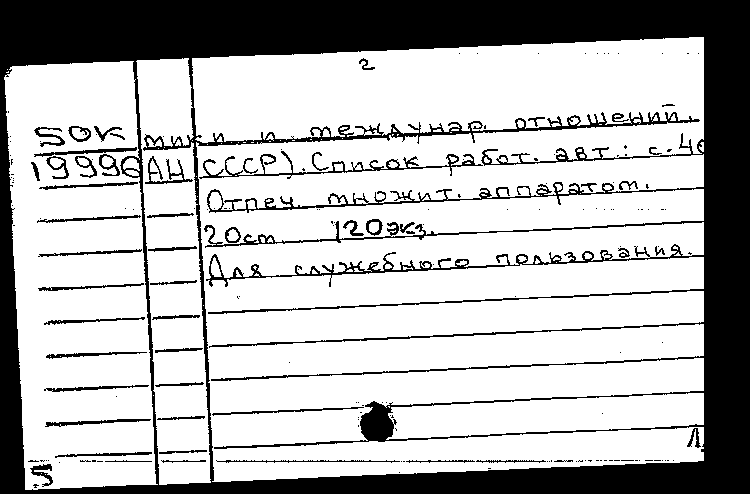 2
50К мики и междунар. отношений.
19996 АН СССР). Список работ. авт.: с. 40
Отпеч. множит. аппаратом.
20см 120экз.
Для служебного пользования.